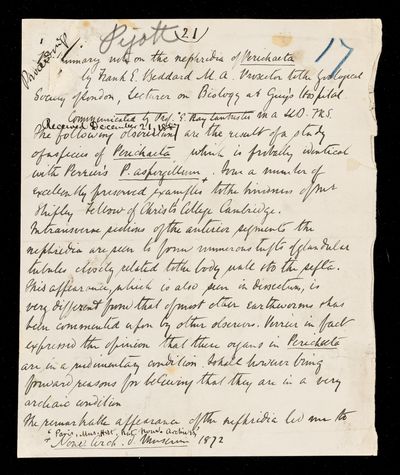 Pyott
(21)
17
Proceedings
Preliminary note on the nephridia of Perichaeta
by Frank E. Beddard M.A. Prosector to the Zoological
Society of London, Lecturer on Biology at Guy's Hospital.
Communicated by Prof. E. Ray Lankester M.A LL.D. F.R.S.
Received December 21, 1887
The following observations are the result of a study
of a species of Perichaeta which is probably identical
with Perrier's P. aspergillum +. I owe a number of
excellently preserved examples to the kindness of Mr
Shipley Fellow of Christ's College Cambridge.
In transverse sections of the anterior segments the
nephridia are seen to form numerous tufts of glandular
tubules closely related to the body wall & to the septa.
This appearance, which is also seen in dissection, is
very different from that of most other Earthworms & has
been commented upon by other observers. Perrier in fact
expressed the opinion that these organs in Perichaeta
are in a rudimentary condition. I shall however bring
forward reasons for believing that they are in a very
archaic condition
The remarkable appearance of the nephridia led me to
Paris, Mus. Hist. Nat.
+ Nouv. Arch. d. Museum 1872